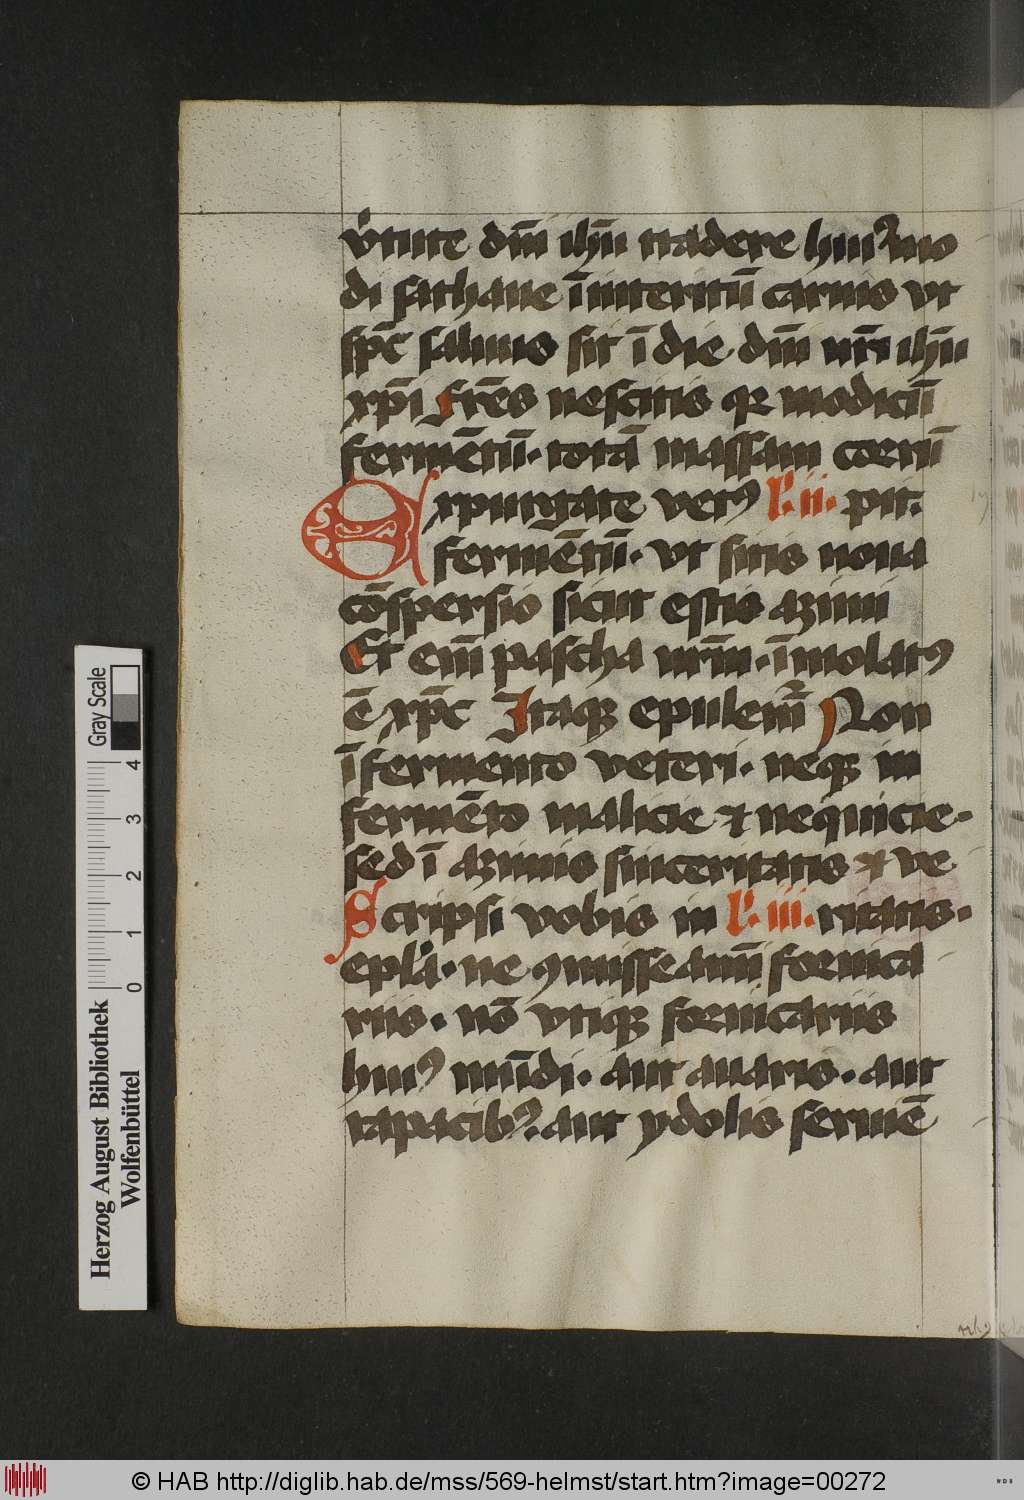 v̓tute dn̄i ihū tradere hui⁹mo
di sathane ī interitū carnis vt
sp̄c saluus sit ī die dn̄i nr̄i ihū
xp̄i fr̄es nescitis qꝛ modicū
fermētū· totā massam corrū
Expurgate vetꝰ l'·ii· pit·
fermētū· vt sitis noua
cōspersio sicut estis azimi
Et em̄ pascha nr̄m·īmolatꝰ
ē xp̄c Itaqꝫ epulem̄ Non
ī fermento veteri· neqꝫ in
fermēto malicie ⁊ nequicie·
sed ī azimis sinceritatis ⁊ ve
Scripsi vobis in l'·iii· ritatis·
epl̄a· ne ꝯmisseamī fornica
riis· nō vtiqꝫ fornicariis
huiꝰ mūdi· aut auaris· aut
rapacibꝰ· aut ydolis fermē
Herzog August Bibliothek
Wolfenbüttel
Gray Scale
0 1 2 3 4
© HAB http://diglib.hab.de/mss/569-helmst/start.htm?image=00272